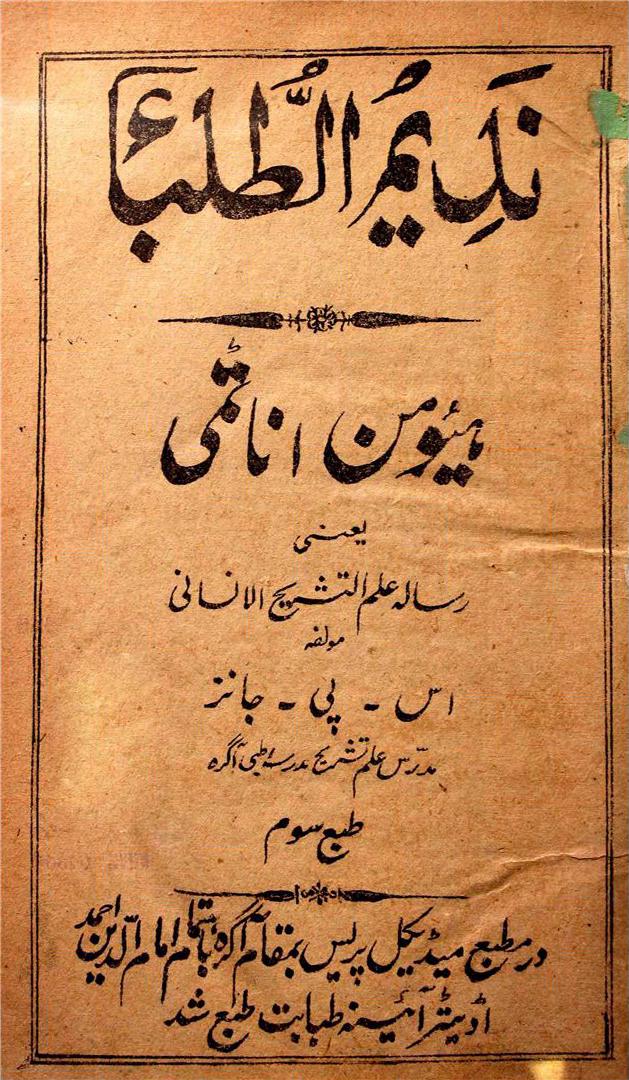 نَدِیمُ الطُّلباءٔ
ہیومن اناٹمی
یعنی
رسالہ علم التشریح الانسانی
مولفہ
اس - پی - جانز
مدرّس علم تشریح مدرسہ طبی آگرہ
طبع سوم
در مطبع میڈیکل پریس بمقام آگرہ باہتمام امام الدین احمد
اڈیٹر آئینہ طبابت طبع شد